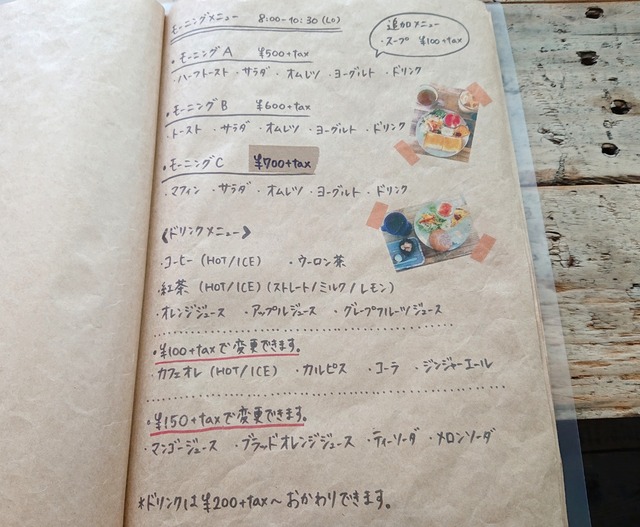 モーニングメニュー 8:00-10:30(LO)
追加メニュー
・スープ ¥100+tax
・モーニングA ¥500+tax
・ハーフトースト ・サラダ ・オムレツ ・ヨーグルト ・ドリンク
・モーニングB ¥600+tax
・トースト ・サラダ ・オムレツ ・ヨーグルト ・ドリンク
・モーニングC ¥700+tax
・マフィン ・サラダ ・オムレツ ・ヨーグルト ・ドリンク
《ドリンクメニュー》
・コーヒー (HOT/ICE) ・ウーロン茶
・紅茶 (HOT/ICE) (ストレート/ミルク/レモン)
・オレンジジュース ・アップルジュース ・グレープフルーツジュース
・¥100+taxで変更できます。
カフェオレ (HOT/ICE) ・カルピス ・コーラ ・ジンジャーエール
・¥150+taxで変更できます。
・マンゴージュース ・ブラッドオレンジジュース ・ティーソーダ ・メロンソーダ
*ドリンクは¥200+tax〜おかわりできます。